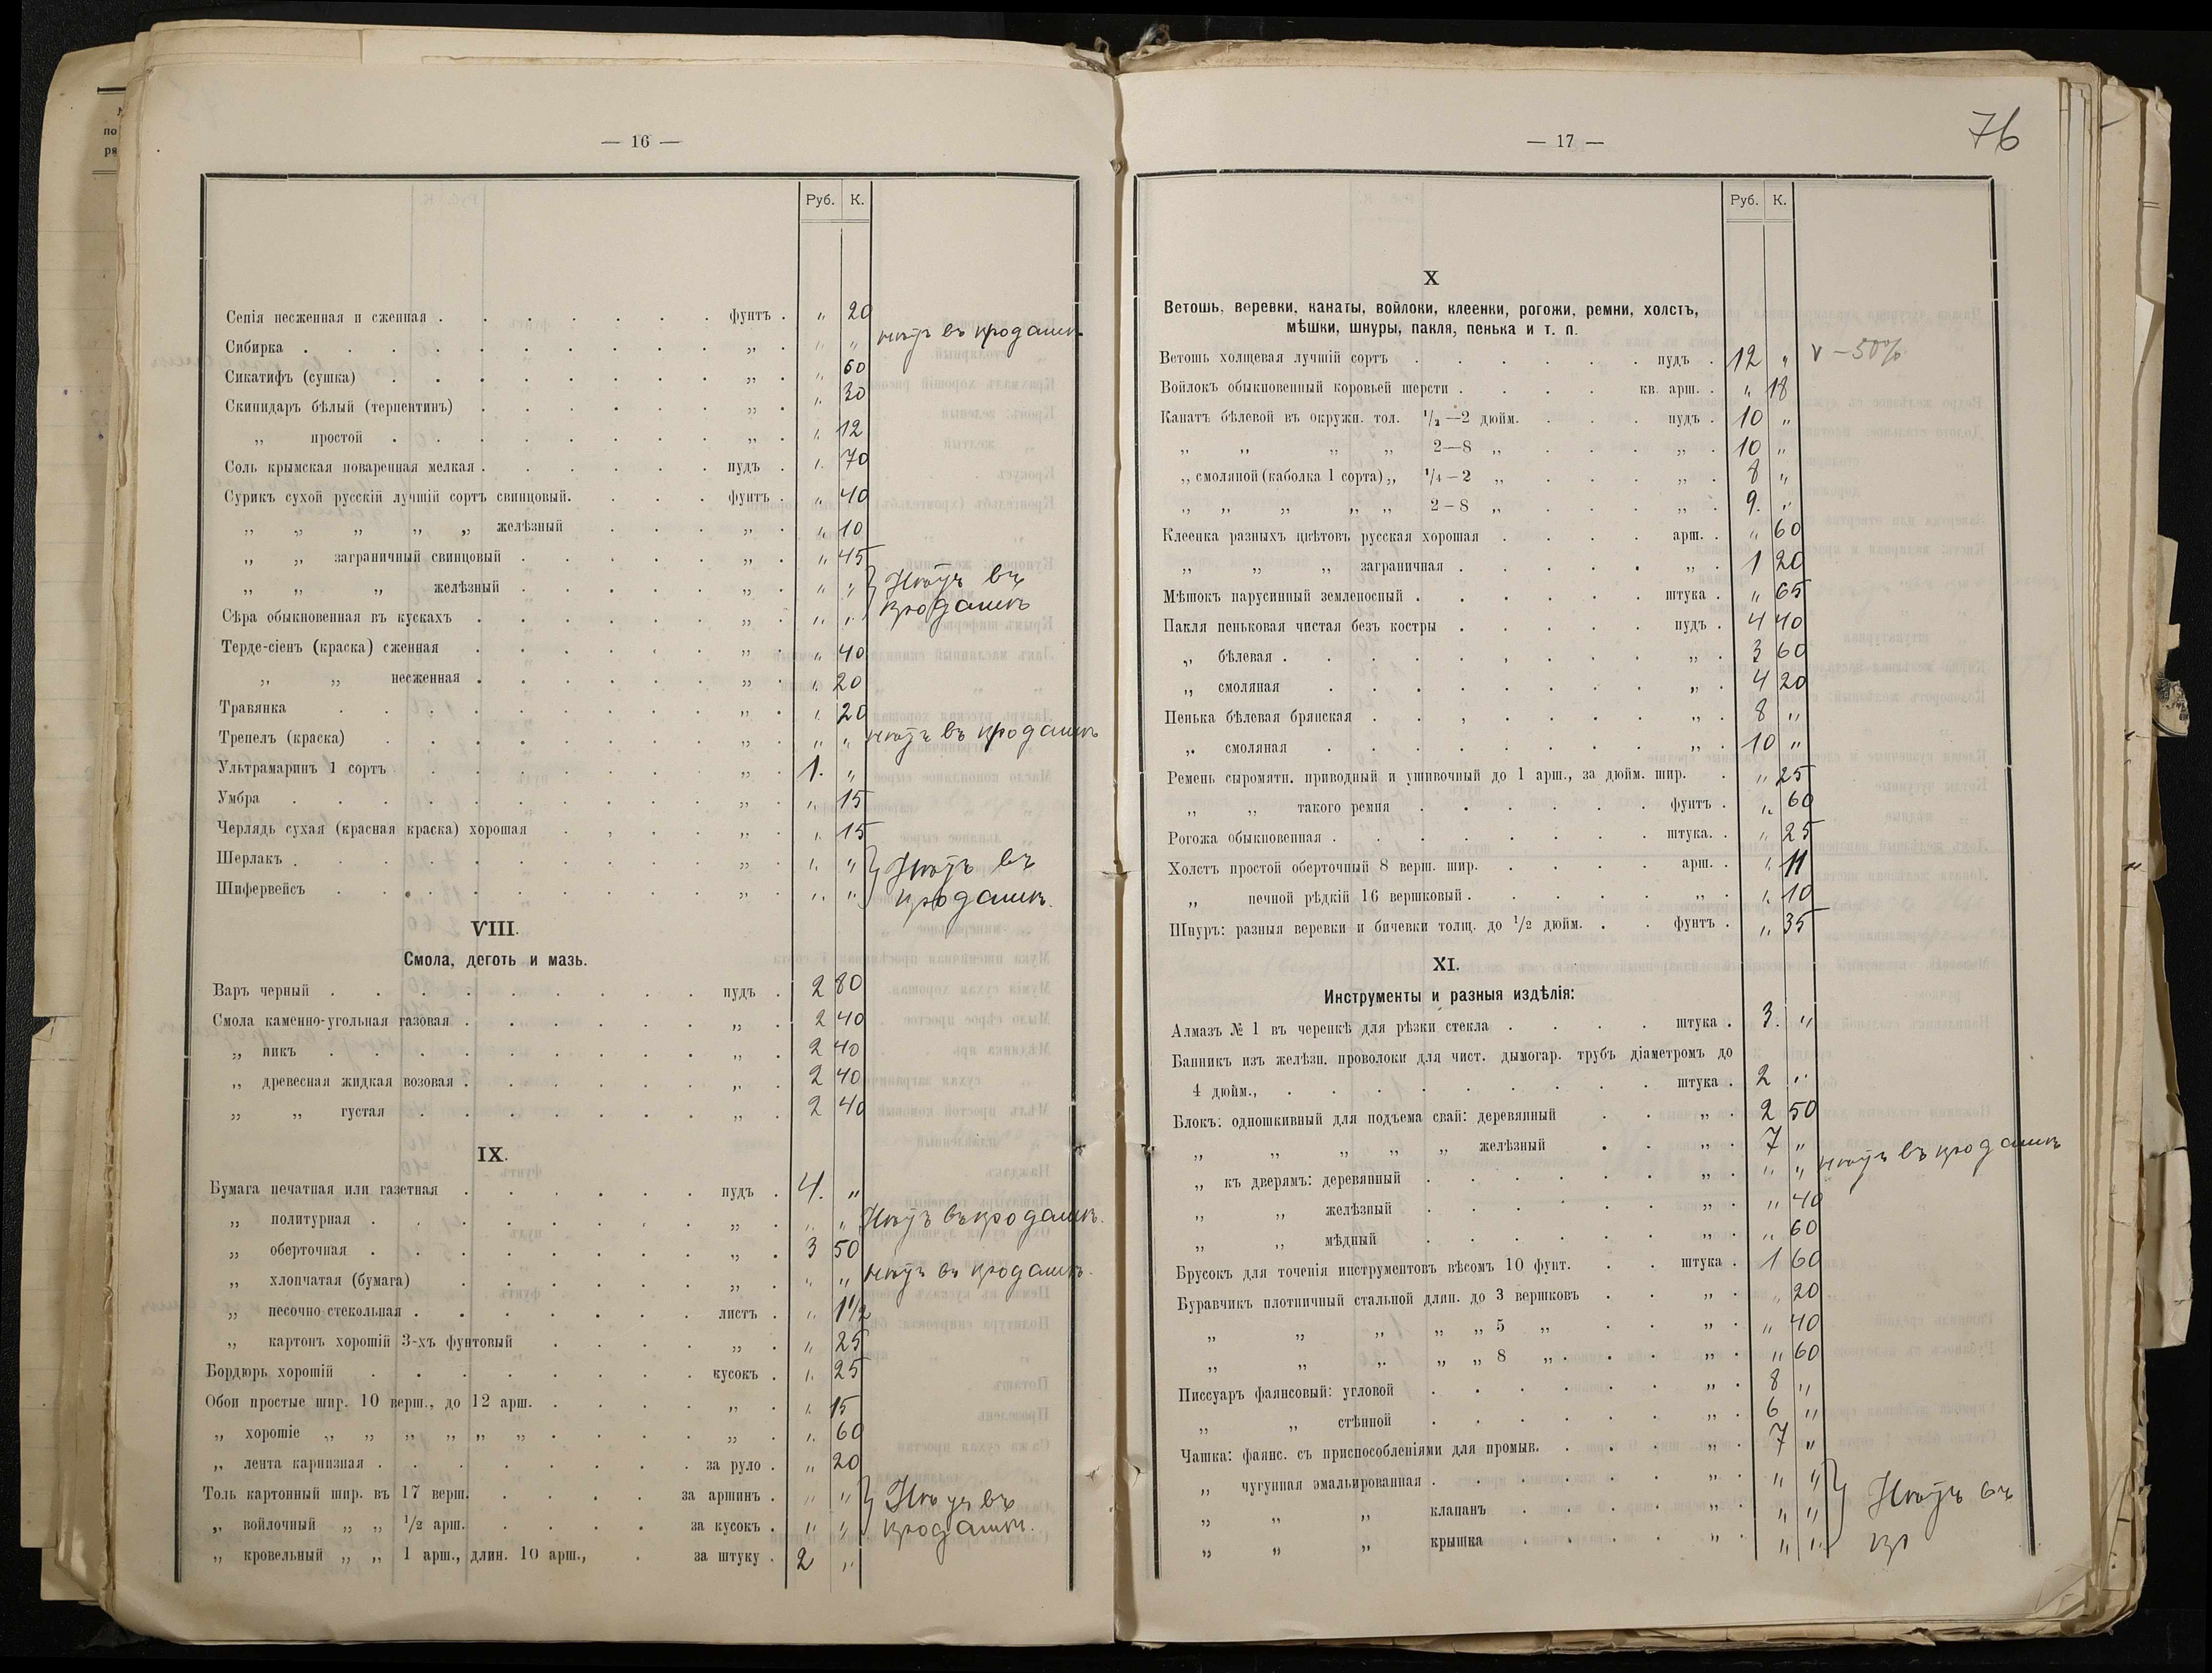 — 16 —
Руб. К.
Сепія несженная и сженная . фунтъ . „ 20
Сибирка . „ . „ „ нѣтъ въ продажѣ
Сикатифъ (сушка) . „ . „ 60
Скипидаръ бѣлый (терпентинъ) . „ . „ 30
„ простой . „ . „ 12
Соль крымская поваренная мелкая . пудъ . „ 70
Сурикъ сухой русскій лучшій сортъ свинцовый. фунтъ . „ 40
„ „ „ „ „ желѣзный . „ . „ 10
„ „ заграничный свинцовый . „ . „ 45
„ „ „ желѣзный . „ . „ „ Нѣтъ въ
Сѣра обыкновенная въ кускахъ . „ . „ „ продажѣ
Терде-сіенъ (краска) сженная . „ . „ 40
„ „ несженная . „ . „ 20
Травянка . „ . „ 20
Трепелъ (краска) . „ . „ „ нѣтъ въ продажѣ
Ультрамаринъ 1 сортъ . „ . 1. „
Умбра . „ . „ 15
Черлядь сухая (красная краска) хорошая . „ . „ 15
Шерлакъ . „ . „ „ Нѣтъ въ
Шифервейсъ . „ . „ „ продажѣ.
VIII.
Смола, деготь и мазь.
Варъ черный . пудъ . 2 80
Смола каменно-угольная газовая . „ . 2 40
„ пикъ . „ . 2 40
„ древесная жидкая возовая . „ . 2 40
„ „ густая . „ . 2 40
IX.
Бумага печатная или газетная . пудъ . 4. „
„ политурная . „ . „ „ Нѣтъ въ продажѣ.
„ оберточная . „ . 3 50
„ хлопчатая (бумага) . „ . „ „ нѣтъ въ продажѣ.
„ песочно-стекольная . листъ . „ 1½
„ картонъ хорошій 3-хъ фунтовый . „ . „ 25
Бордюръ хорошій . кусокъ . „ 25
Обои простые шир. 10 верш., до 12 арш. . „ . „ 15
„ хорошіе „ „ „ „ „ „ . „ . „ 60
„ лента карнизная . за руло . „ 20
Толь картонный шир. въ 17 верш. за аршинъ . „ „ Нѣтъ въ
„ войлочный „ „ ½ арш. за кусокъ . „ „ продажѣ.
„ кровельный „ „ 1 арш., длин. 10 арш., за штуку . 2 „
— 17 —
76
Руб. К.
X
Ветошь, веревки, канаты, войлоки, клеенки, рогожи, ремни, холстъ,
мѣшки, шнуры, пакля, пенька и т. п.
Ветошь холщевая лучшій сортъ . пудъ . 12 „ v – 50%
Войлокъ обыкновенный коровьей шерсти . кв. арш. . „ 18
Канатъ бѣлевой въ окружн. тол. ½—2 дюйм. . пудъ . 10 „
„ „ „ „ 2—8 „ . „ . 10 „
„ смоляной (каболка 1 сорта) „ ¼—2 „ . „ . 8 „
„ „ „ „ „ 2—8 „ . „ . 9. „
Клеенка разныхъ цвѣтовъ русская хорошая . арш. . „ 60
„ „ „ заграничная . „ . 1 20
Мѣшокъ парусинный земленосный . штука . „ 65
Пакля пеньковая чистая безъ костры . пудъ . 4 40
„ бѣлевая . „ . 3 60
„ смоляная . „ . 4 20
Пенька бѣлевая брянская . „ . 8 „
„ смоляная . „ . 10 „
Ремень сыромятн. приводный и ушивочный до 1 арш., за дюйм. шир. . „ 25
„ „ такого ремня . фунтъ . „ 60
Рогожа обыкновенная . штука. . „ 25
Холстъ простой оберточный 8 верш. шир. . арш. . „ 11
„ печной рѣдкій 16 вершковый . „ . „ 10
Шнуръ: разныя веревки и бичевки толщ. до ½ дюйм. . фунтъ . „ 35
XI.
Инструменты и разныя издѣлія:
Алмазъ № 1 въ черенкѣ для рѣзки стекла . штука . 3. „
Банникъ изъ желѣзн. проволоки для чист. дымогар. трубъ діаметромъ до
4 дюйм., . штука . 2 „
Блокъ: одношкивный для подъема свай: деревянный . „ . 2 50
„ „ „ „ „ желѣзный . „ . 7 „
„ къ дверямъ: деревянный . „ . „ „ нѣтъ въ продажѣ
„ „ желѣзный . „ . „ 40
„ „ мѣдный . „ . „ 60
Брусокъ для точенія инструментовъ вѣсомъ 10 фунт. . штука . 1 60
Буравчикъ плотничный стальной длин. до 3 вершковъ . „ . „ 20
„ „ „ „ „ 5 „ . „ . „ 40
„ „ „ „ „ 8 „ . „ . „ 60
Писсуаръ фаянсовый: угловой . „ . 8 „
„ „ стѣнной . „ . 6 „
Чашка: фаянс. съ приспособленіями для промыв. . „ . 7 „
„ чугунная эмальированная . „ . „ „ Нѣтъ въ
„ „ „ клапанъ . „ . „ „
„ „ „ крышка . „ . „ „ пр